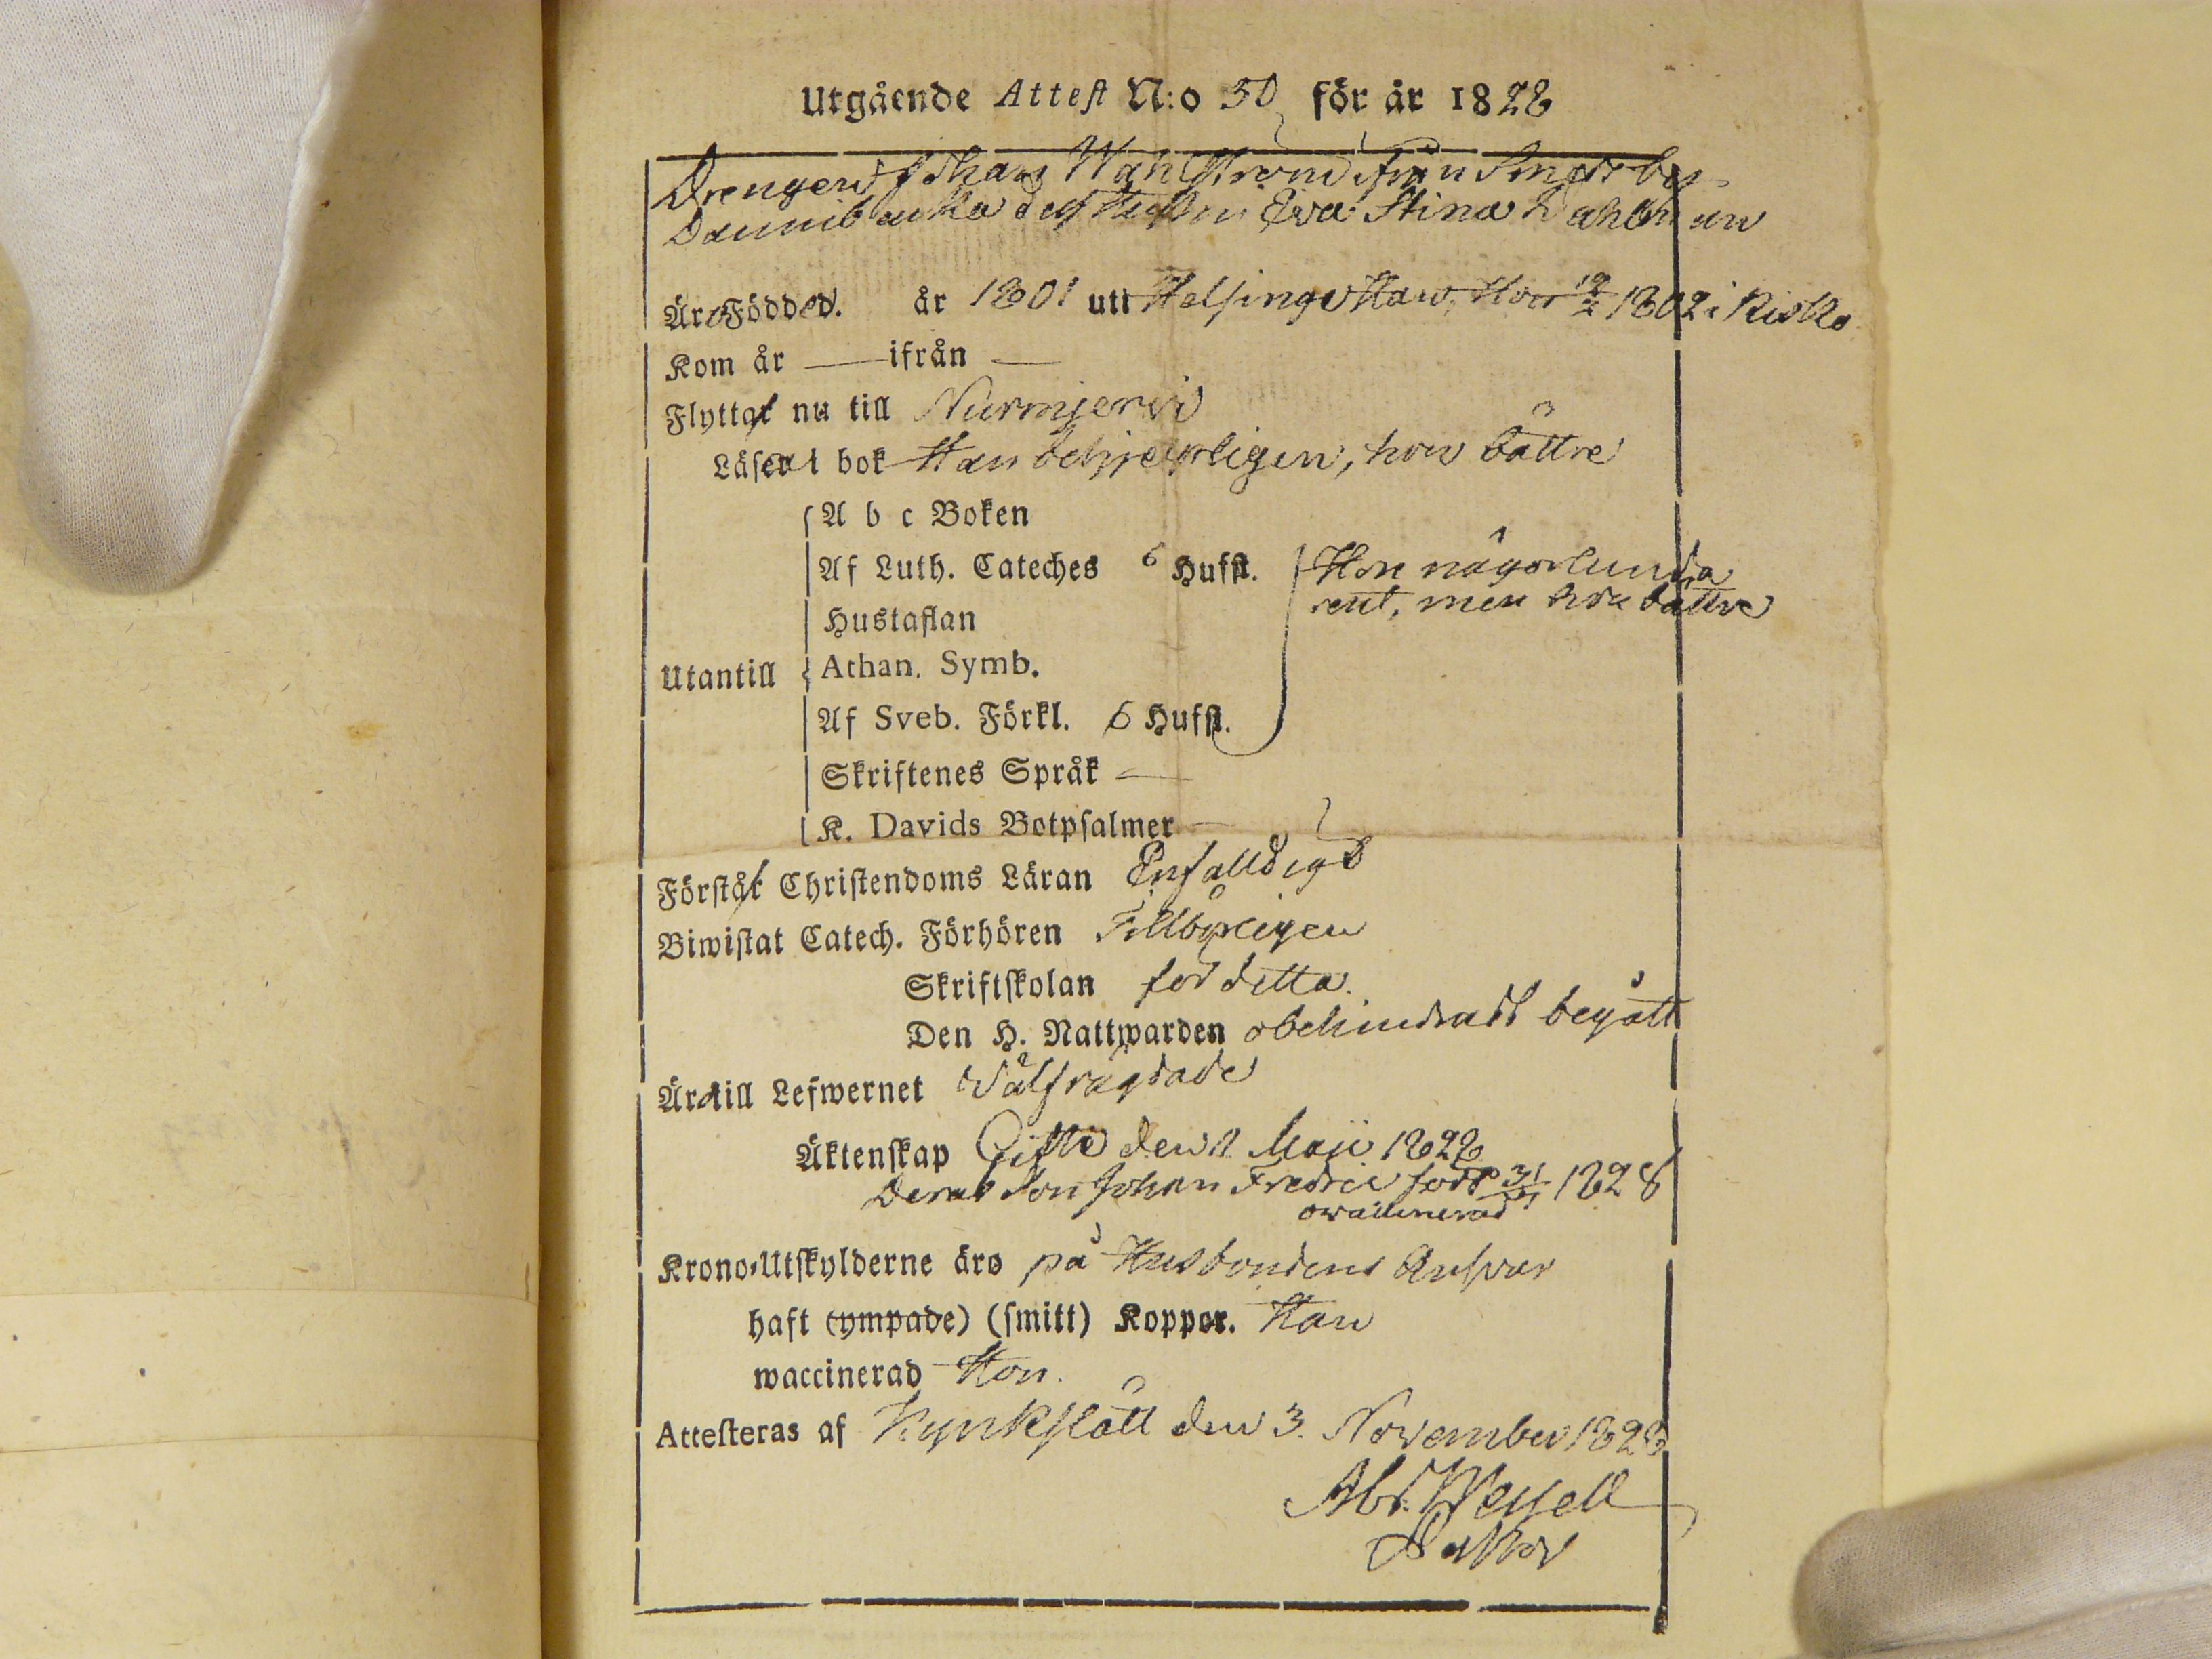 Utgående Attest N:o 50 för år 1828
Drengen Johan Wahlstrőm från Smedsby
Dannibacka des Hustru Eva Stina Dahlman
Äro Födde d. år 1801 uti Helsinge Han, Hon 12/2 1802 i Kisko
Kom år — ifrån —
Flytta nu till Nurmijervi
Läsa i bok Han behjelpligen, hon bättre
A b c Boken
Af Luth. Cateches 6 Hufst. Hon någorlunda
rent, men hon bättre
Hustaflan
Utantill Athan. Symb.
Af Sveb. Förkl. 6 Hufst.
Skriftenes Språk —
K. Davids Botpsalmer —
Förstå Christendoms Läran Enfalldigt
Biwistat Catech. Förhören Tillbörligen
Skriftskolan för detta.
Den H. Nattwarden obehindradt begått
Äro till Lefwernet Wälfrägdade
Äktenskap Gifte den 11 Maji 1828
Deras Son Johan Fredric född 31/ 1828
owaccinerad
Krono-Utskylderne äro på Husbondens Answar
haft (ympade) (smitt) Koppor. Han
waccinerad Hon.
Attesteras af Kyrkslätt den 3. November 1828
Abr. Wessell
Pastor